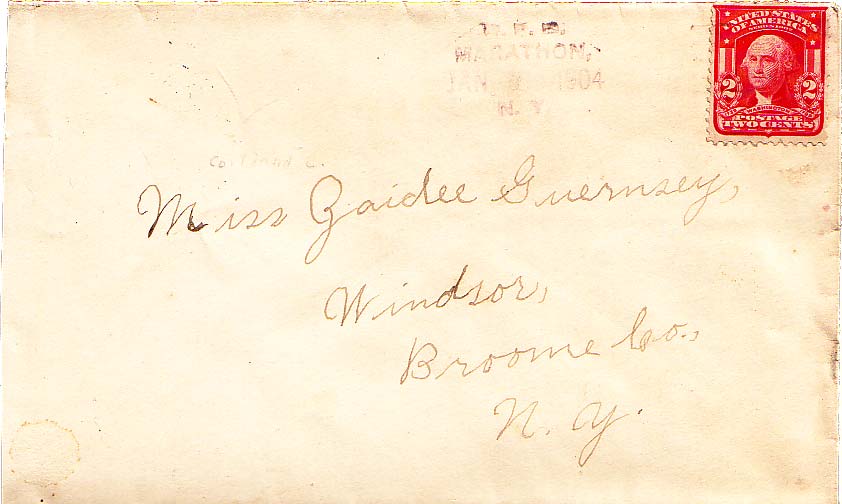 R. F. D.
MARATHON,
JAN 1904
N. Y.
UNITED STATES
OF AMERICA
SERIES 1902
2 2
WASHINGTON
POSTAGE
TWO CENTS
Cortland c.
Miss Zaidee Guernsey,
Windsor,
Broome Co.,
N. Y.